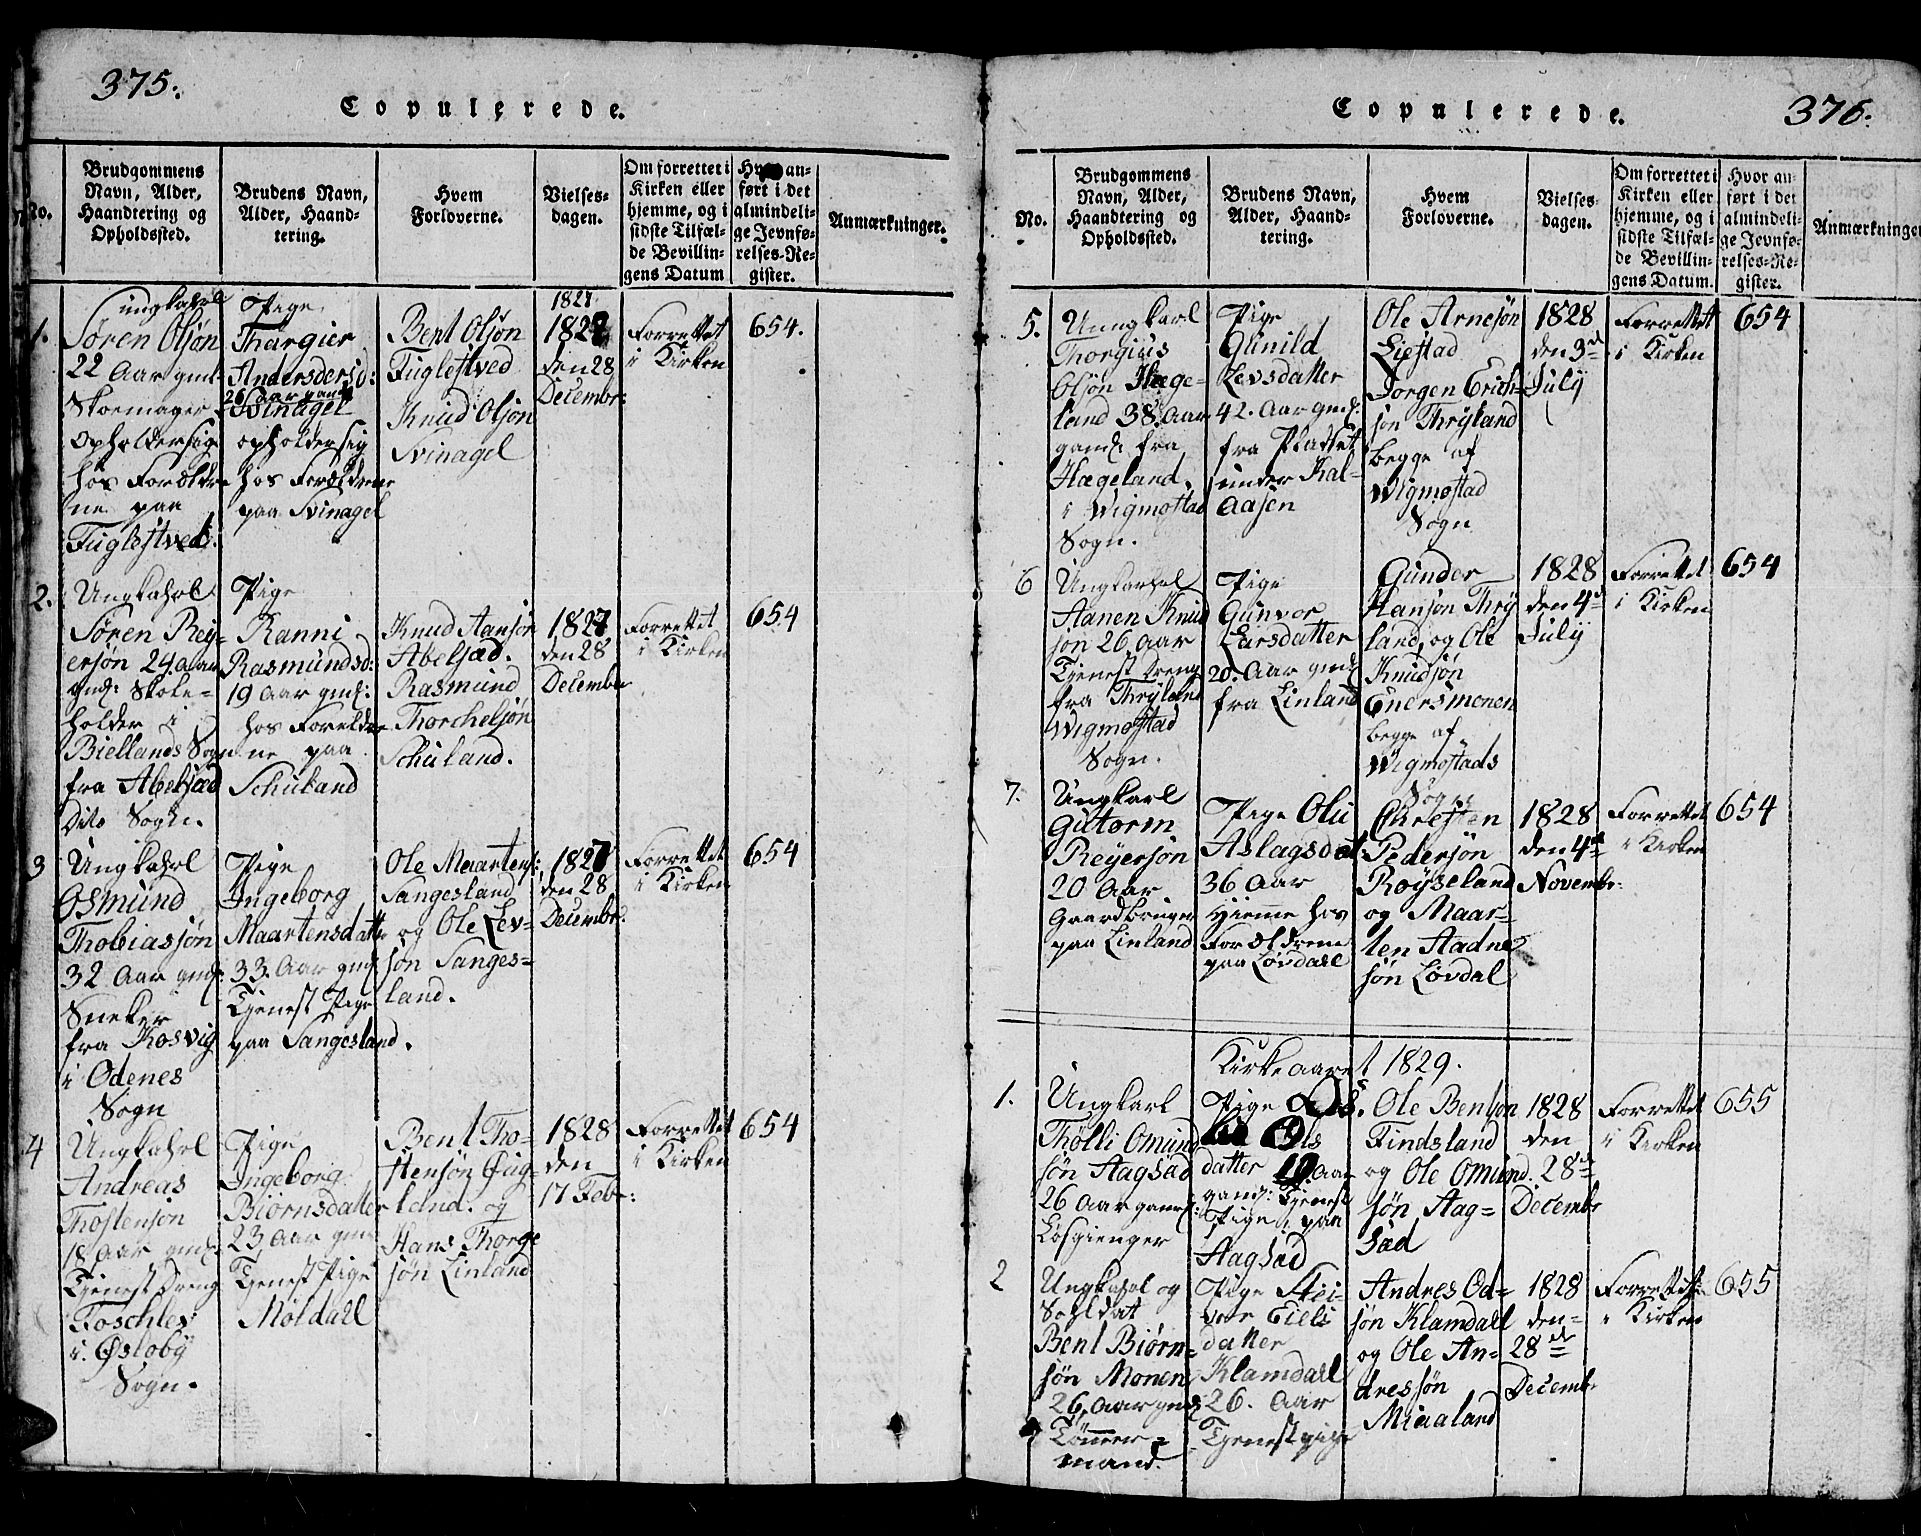 375.
Copulerede.
No.
Brudgommens
Navn, Alder,
Haandtering og
Opholdssted.
Brudens Navn,
Alder, Haand-
tering.
Hvem
Forloverne.
Vielses-
dagen.
Om forrettet i
Kirken eller
hjemme, og i
sidste Tilfæl-
de Bevillin-
gens Datum
Hvor an-
ført i det
almindeli-
ge Jevnfø-
relses-Re-
gister.
Anmærkninger.
1.
Ungkahrl
Søren Olsøn
22 Aar gml.
Skoemager
opholder sig
hos Forældre
ne paa
Fuglestved.
Pige
Thargier
Andersdersd:
26 Aar gaml
Svinagel
opholder sig
hos Forældrene
paa Svinagel
Bent Olsøn
Fuglestved
Knud Olsøn
Svinagel
1827
1827
den 28
Decembr:
Forrettet
i Kirken
654.
2.
Ungkahrl
Søren Rey-
ersøn 24 Aar
gml: Skole-
holder i
Biellands Sogn
fra Abelsæd
Dito Sogn.
Pige
Ranni
Rasmundsd:
19 Aar gml:
hos Foreldre
ne paa
Schuland
Knud Aansøn
Abelsæd.
Rasmund
Thorchelsøn
Schuland.
1827
den 28
Decembr
Forrettet
i Kirken
654
3
Ungkahrl
Osmund
Thobiassøn
32 Aar gml:
Sneker
fra Kosvig
i Odenes
Sogn
Pige
Ingeborg
Maartensdatter
33 Aar gml
Tjenest Pige
paa Sangesland.
Ole Maartens:
Sangesland
og Ole Lev-
søn Sanges-
land.
1827
den 28
Decembr:
Forrettet
i Kirken
654
4
Ungkahrl
Andreas
Thostensøn
18 Aar gml:
Tjenest Dreng
Foschlev
i Øsloby
Sogn.
Pige
Ingeborg
Biørnsdatter
23 Aar gml
Tjenest Pige
Møldall
Bent Tho-
stensøn Øug-
land. og
Hans Thorge
søn Linland
1828
den
17 Feb:
Forrettet
i Kirken
654
376.
Copulerede.
No.
Brudgommens
Navn, Alder,
Haandtering og
Opholdssted.
Brudens Navn,
Alder, Haand-
tering.
Hvem
Forloverne.
Vielses-
dagen.
Om forrettet i
Kirken eller
hjemme, og i
sidste Tilfæl-
de Bevillin-
gens Datum.
Hvor an-
ført i det
almindeli-
ge Jevnfø-
relses-Re-
gister.
Anmærkninger
5.
Unngkarl
Thorgius
Olsøn Hæge-
land 38. Aar
gaml fra
Hægeland
i Wigmostad
Sogn.
Pige
Gunild
Levsdatter
42. Aar gml:
fra Pladset
under Kal-
aasen
Ole Arnesøn
Liestad
Jorgen Erich-
søn Thryland
begge af
Wigmostad
Sogn
1828
den 3de
July
Forrettett
i Kirken
654
6
Ungkarhel
Aanen Knud
søn 26 Aar
Tjenest Dreng
fra Thryland
Wigmostad
Sogn.
Pige
Gunvor
Larsdatter
20. Aar gml
fra Linland
Gunder
Hansøn Thry
land, og Ole
Knudsøn
Enersmonen
begge af
Wigmostads
Sogn
1828
den 4de
July
Forrettet
i Kirken
654
7.
Ungkarl
Gutorm
Reyersøn
20 Aar
Gaardbruger
paa Linland
Pige Olu
Aslagsdat:
36 Aar
Hjemme hos
Forældrene
paa Løvdall
Chresten
Pedersøn
Røyseland
og Maar-
ten Aadne
søn Løvdal
1828
den 4de
Novembr:
Forrettet
i Kirken
654
Kirke aaret 1829.
1.
Ungkarl
Thølli Omund
søn Aagsæd
26 Aar gaml:
Løsgienger
Pige Aas.
datter 19 Aar
gaml: Tjenest
Pige paa
Aagsæd
Ole Bentsøn
Findsland
og Ole Omund.
søn Aag-
sæd
1828
den
28de
Decembr
Forrettet
i Kirken
655
2
Ungkahrl og
Sohldat
Bent Biørn-
søn Monen
26 Aar gml
Tømmer-
mand.
Pige
vor Eiels
datter
Klamdall
26. Aar
Tjenestpige
Andres Od-
søn Klamdall
og Ole An-
dressøn
Miaaland
1828
den-
28de
Decemb:
Forrettet
i Kirken
655